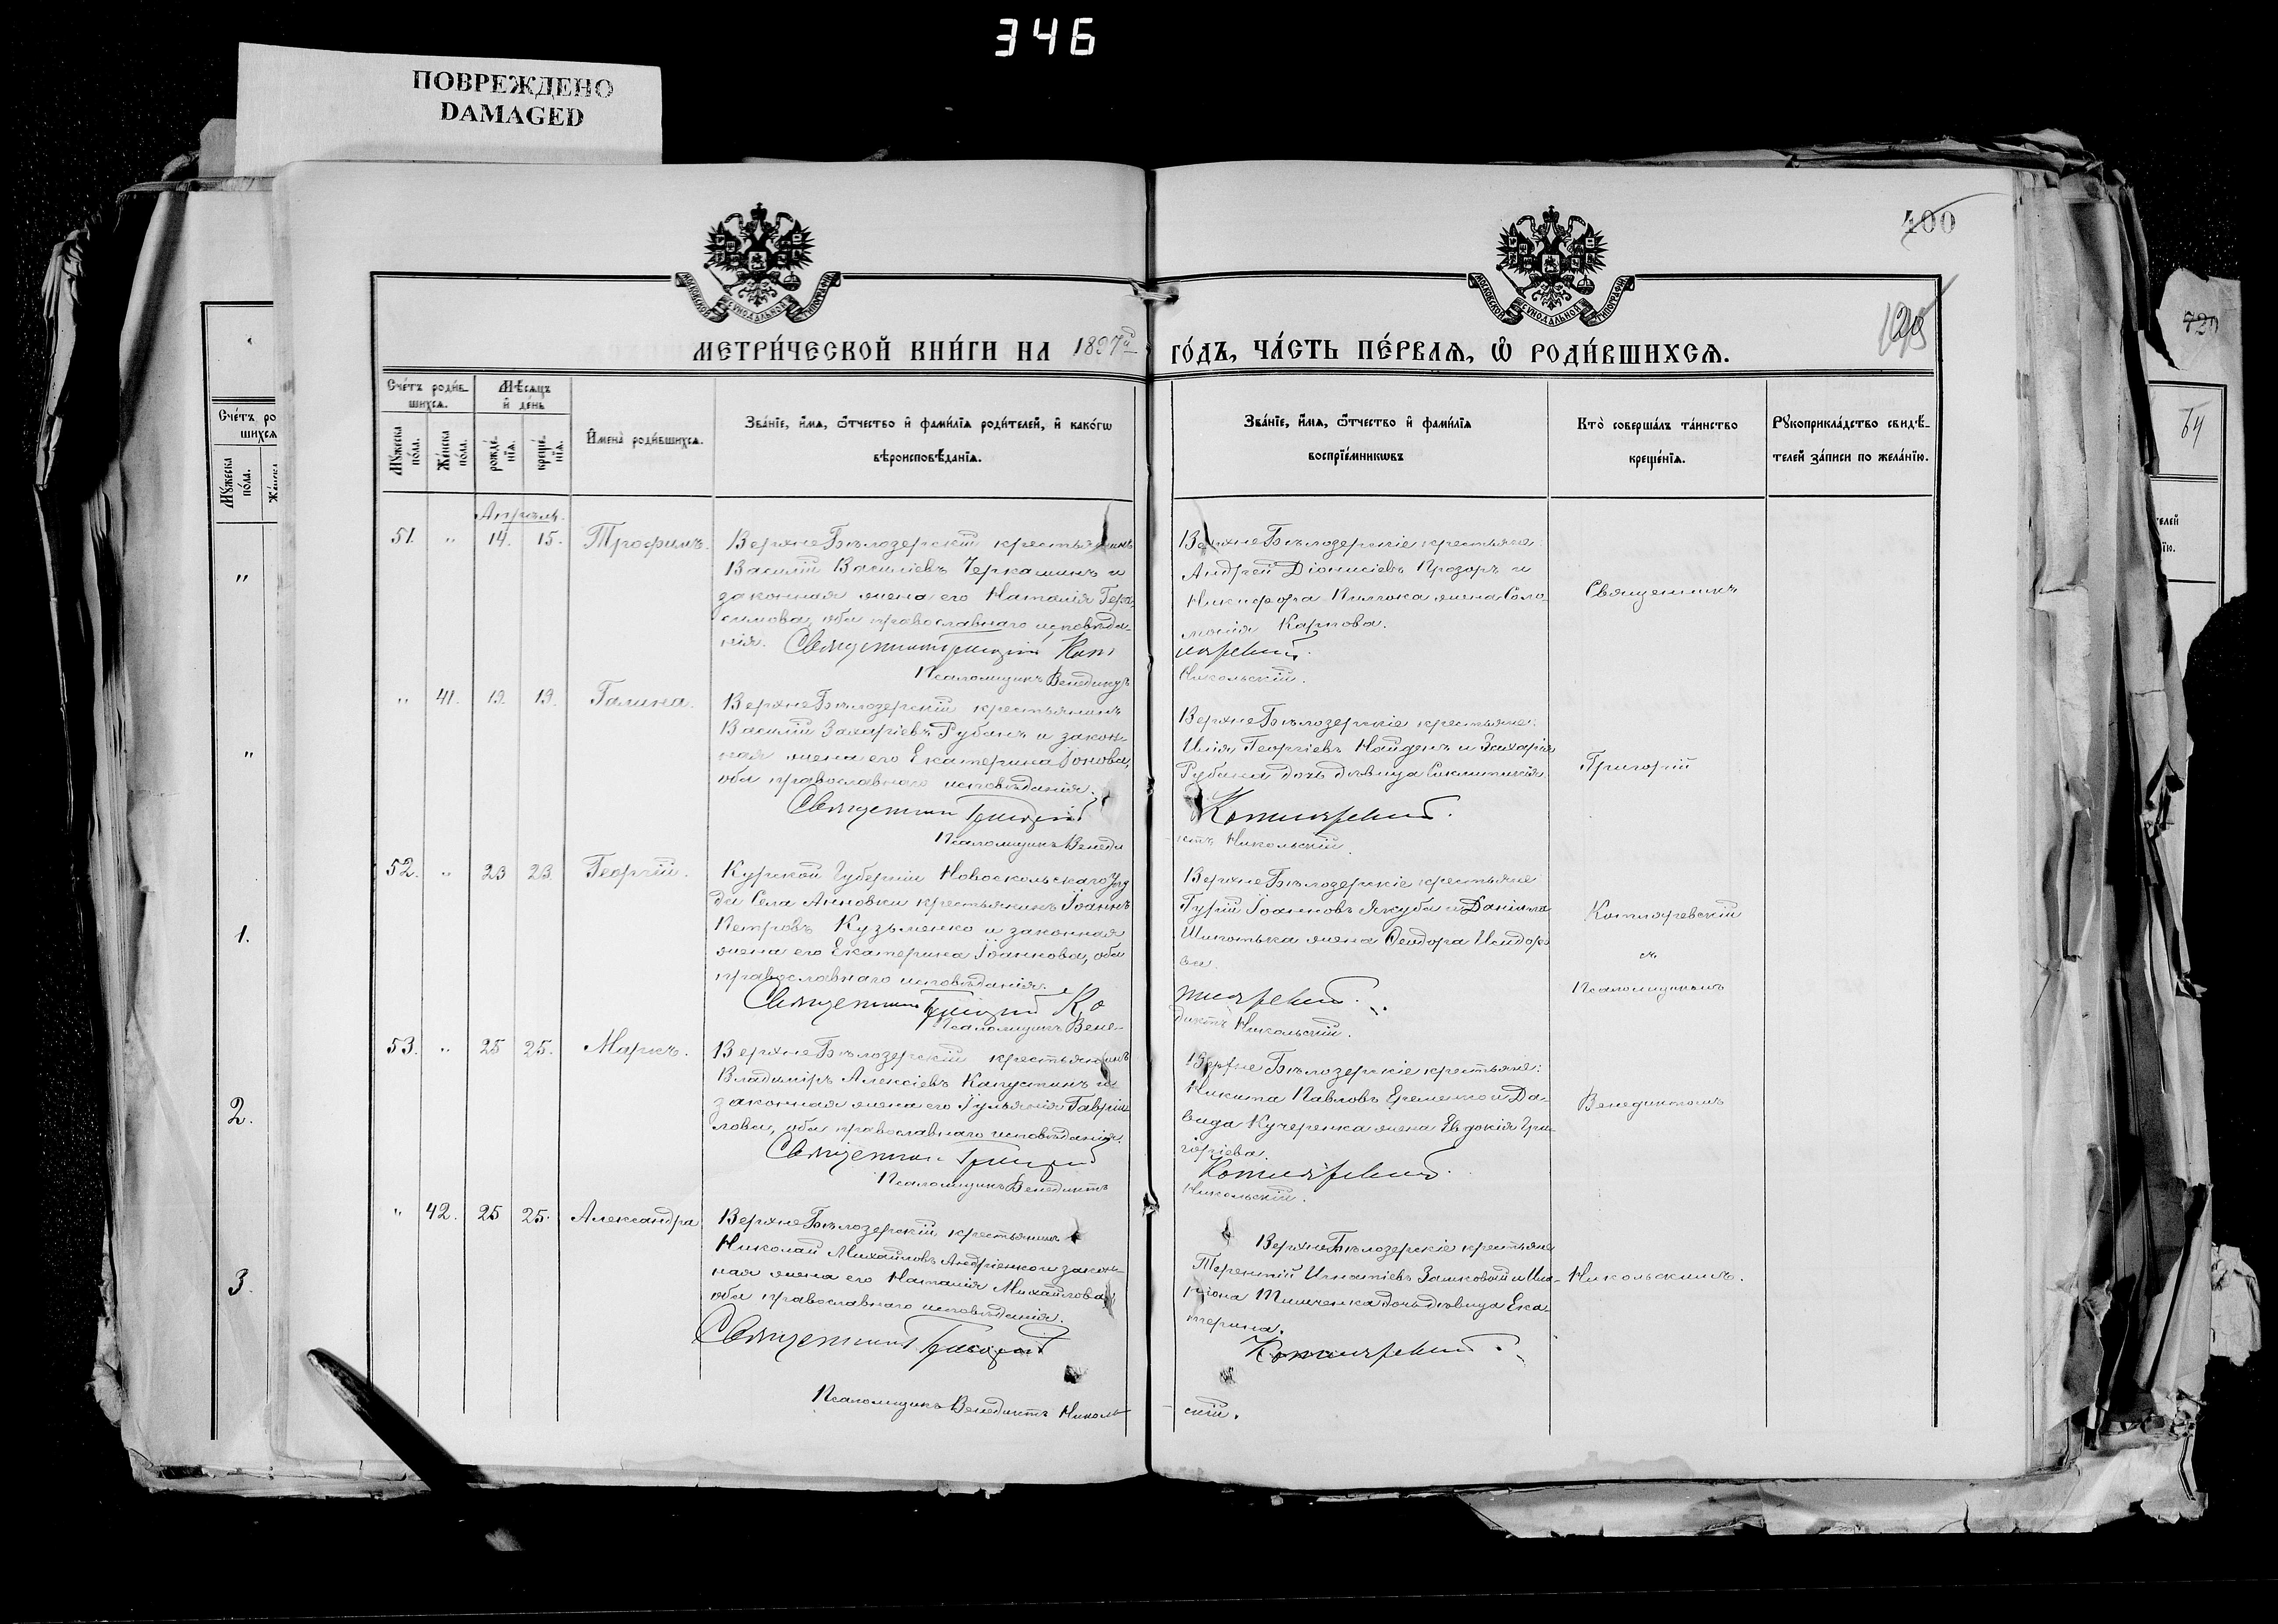 346
ПОВРЕЖДЕНО
DAMAGED
400
МОСКОВСКОЙ СѴНОДАЛЬНОЙ ТИПОГРАФІИ
МОСКОВСКОЙ СѴНОДАЛЬНОЙ ТИПОГРАФІИ
729
64
МЕТРИ́ЧЕСКОЙ КНИ́ГИ НА 1897й
ГО́ДЪ, ЧА́СТЬ ПЕ́РВАѦ, Ѽ РОДИ́ВШИХСѦ.
Сче́тъ роди́в-
шихсѧ.
Мѣ́сѧцъ
и҆ де́нь
Мꙋ́жеска по́ла.
Же́нска по́ла.
рожде́нїѧ.
креще́нїѧ.
И҆мена̀ роди́вшихсѧ.
Зва́нїе, и҆́мѧ, ѻ҆́тчество и҆ фами́лїѧ роди́телей, и҆ како́гѡ
вѣроисповѣ́данїѧ.
Зва́нїе, и҆́мѧ, ѻ҆́тчество и҆ фами́лїѧ
воспрїе́мникѡвъ
Кто̀ соверша́лъ та́инство
креще́нїѧ.
Рꙋкоприкла́дство свидѣ́-
телей за́писи по жела́нїю.
Сче́тъ ро
шихсѧ
Мꙋ́жеска по́ла.
Же́нска
"
"
1.
2.
3.
Апрѣль.
51. " 14. 15. Трофимъ.
ВерхнеБѣлозерскій крестьянинъ
Василій Василіевъ Черкашинъ и
законная жена его Наталія Гера-
симова, оба православнаго исповѣда-
нія. Священникъ Григорій Кот
Псаломщикъ Венедиктъ
ВерхнеБѣлозерскіе крестьяне
Андрей Діонисіевъ Прозоръ и
Никифора жена Соло-
монія Карпова.
ляревскій.
Никольскій.
Священникъ
" 41. 19. 19. Галина.
ВерхнеБѣлозерскій крестьянинъ
Василій Захаріевъ Рубанъ и закон-
ная жена его Екатерина Іонова,
оба православнаго исповѣданія.
Священникъ Григорій
Псаломщикъ Венеди
ВерхнеБѣлозерскіе крестьяне:
Илія Георгіевъ Найденъ и Захарія
Рубана дочь дѣвица Синклитикія
Котляревскій.
ктъ Никольскій.
Григорій
52. " 23 23. Георгій.
Курской Губерніи Новооскольскаго уѣз
да Села Анновки крестьянинъ Іоаннъ
Петровъ Кузьменко и законная
жена его Екатерина Іоаннова, оба
православнаго исповѣданія.
Священникъ Григорій Ко
Псаломщикъ Вене-
ВерхнеБѣлозерскіе крестьяне
Гурій Іоанновъ Якуба и Даніила
жена Феодора Исидоро
ва.
тляревскій.
диктъ Никольскій.
Котляревскій
съ
Псаломщикомъ
53. " 25 25. Маркъ.
ВерхнеБѣлозерскій крестьянинъ
Владиміръ Алексіевъ Капустинъ и
законная жена его Іуліанія Гавріи
лова, оба православнаго исповѣданія.
Священникъ Григорій
Псаломщикъ Венедиктъ
ВерхнеБѣлозерскіе крестьяне:
Никита Павловъ Еременко и Да-
вида Кучеренка жена Евдокія Гри-
горіева.
Котляревскій.
Никольскій.
Венедиктомъ
" 42. 25 25. Александра
ВерхнеБѣлозерскій крестьянинъ
Николай Михайловъ Андріенко и закон-
ная жена его Наталія Михайлова,
оба православнаго исповѣданія.
Священникъ Григорій
Псаломщикъ Венедиктъ Николь
ВерхнеБѣлозерскіе крестьяне
Терентій Игнатіевъ Зашковой и Ила-
ріона Тимченка дочь дѣвица Ека-
терина.
Котляревскій.
скій.
Никольскимъ.